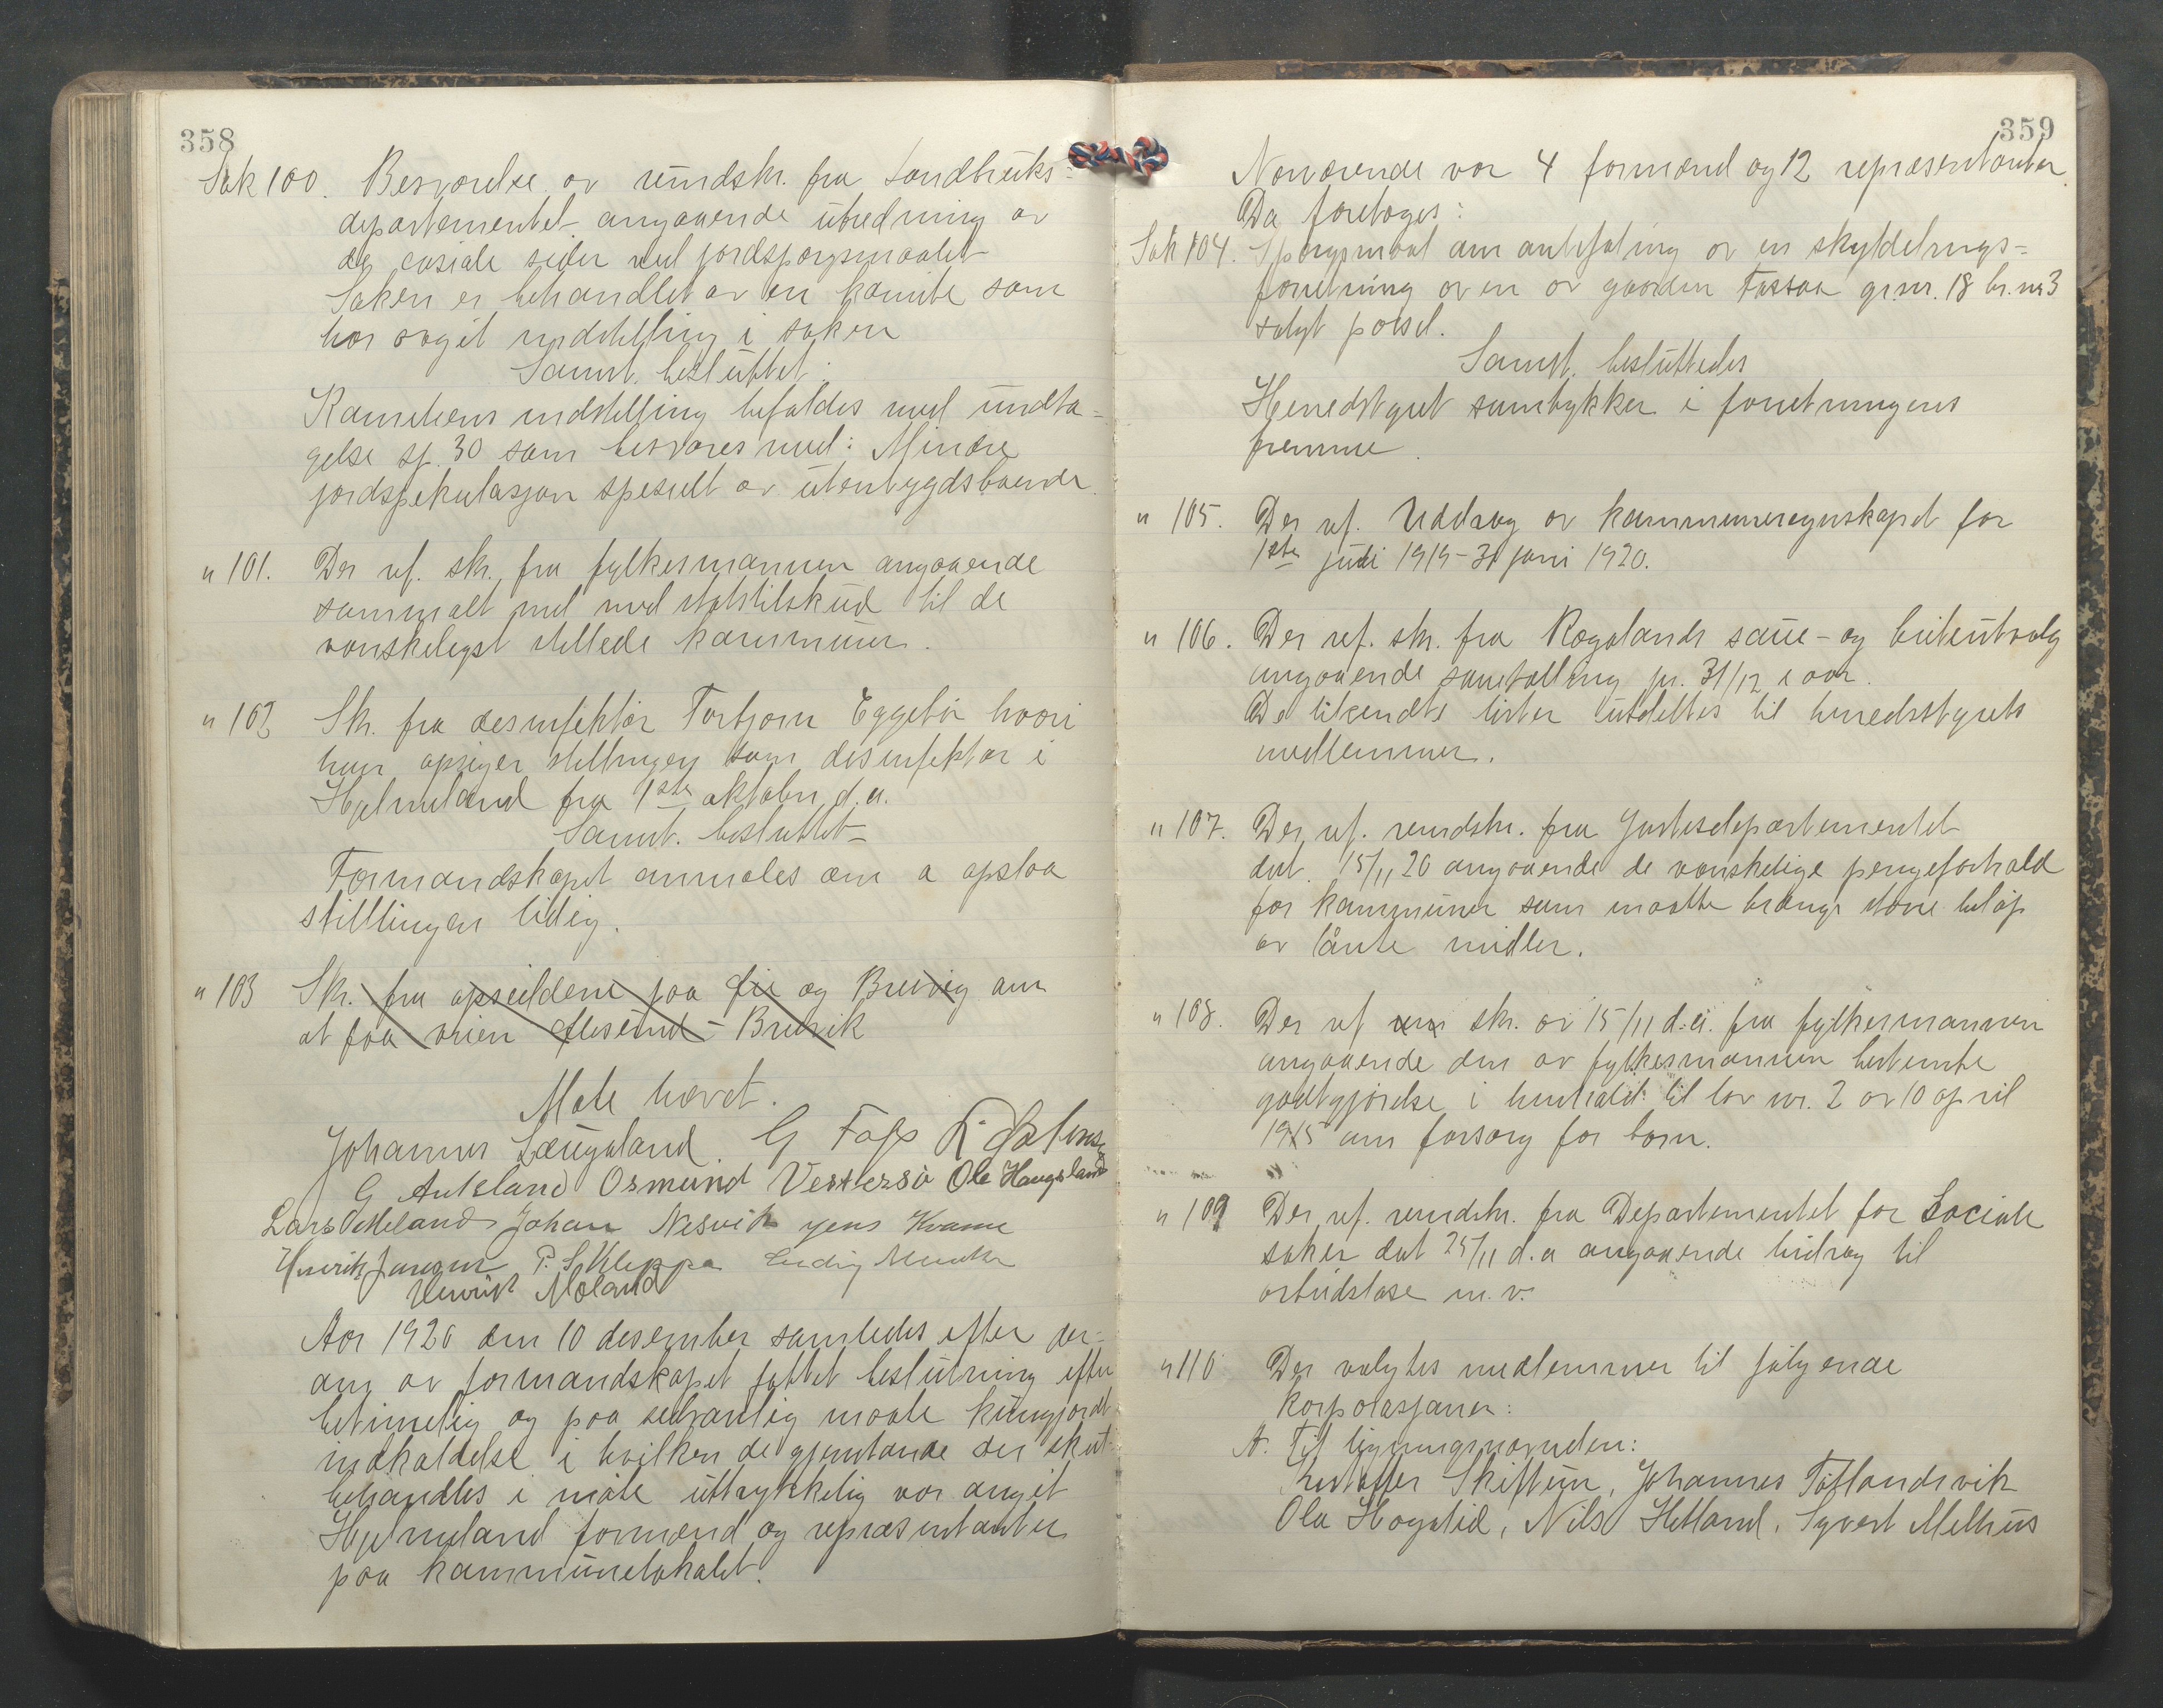 358
Sak 100. Besvarelse av rundskr. fra Landbruks=
departementet angaaende utredning av
de sosiale sider ved jordspørgsmaalet
Saken er behandlet av en komite som
har avgit indstilling i saken
Samt. besluttet:
Komiteens indstilling bifaldes med undta=
gelse sp. 30 som besvares med: Mindre
jordspekulasjon spesielt av utenbygdsboende.
" 101. Der ref. skr. fra fylkesmannen angaaende
statstilskud til de
vanskeligst stillede kommuner.
" 102 Skr. fra desinfektør Torbjørn Eggebø hvori
han opsiger stillingen som desinfektør i
Hjelmeland fra 1ste oktober d.a.
Samt. besluttet
Formandskapet anmodes om a opslaa
stillingen ledig.
" 103 Skr. fra opsidderne paa og Brevig om
at faa veien - Brevik
Møte hævet.
Johannes Laugaland. G Fofs
G Auksland Osmund Vestersø Ole Haugsland
Lars Meland Johan Nesvik Jens Kvame
Henrik P. S. Kleppa
Henrik Mæland
Aar 1920 den 10 desember samledes efter der=
om av formandskapet fattet beslutning efter
betimelig og paa sedvanlig maate kungjordt
indkaldelse i hvilken de gjenstande der skul
behandles i møte uttrykkelig var angit
Hjelmeland formænd og repræsentanter
paa kommunelokalet.
359
Nærværende var 4 formænd og 12 repræsentanter.
Da foretoges:
Sak 104. Spørgsmaal om anbefaling av en skyldelings=
forretning over en av gaarden Fossaa gr.nr. 18 br.nr 3
solgt parsel.
Samt. besluttedes
Herredstyret samtykker i forretningens
fremme.
" 105. Der ref. Uddrag av kommuneregnskapet for
1ste juli 1919 - 31 juni 1920.
" 106. Der ref. skr. fra Rogalands saue- og beiteutvalg
angaaende sauetælling pr. 31/12 i aar.
De tilsendte lister utdeltes til herredsstyrets
medlemmer.
" 107. Der ref. rundskr. fra Justisdepartementet
dat. 15/11 20 angaaende de vanskelige pengeforhold
for kommuner som maatte trænge støre beløp
av lånte midler.
" 108. Der ref skr. av 15/11 d.a. fra fylkesmannen
angaaende den av fylkesmannen bestemte
godtgjørelse i henhold til lov nr. 2 av 10 april
1915 om forsorg for barn.
" 109 Der ref. rundskr. fra Departementet for Sociale
saker dat 25/11 d.a angaaende bidrag til
arbeidsløse m.v.
" 110 Der valgtes medlemmer til følgende
korporasjoner:
A. Til ligningsnævnden:
Kristoffer Skiftun, Johannes Tøtlandsvik
Ola Hogalid, Nils Hetland, Syvert Melhus